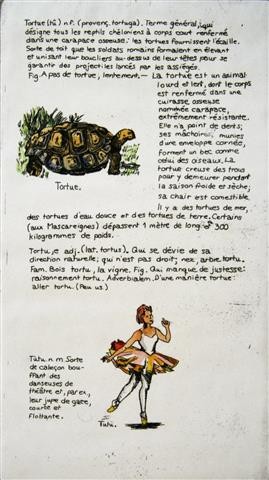 Tortue (tû) n.f. (provenç. tortuga). Terme général, qui
désigne tous les reptils chéloniens à corps court renfermé
dans une carapace osseuse: les tortues fournissent l'écaille.
Sorte de toit que les soldats romains formaient en élevant
et unisant leur boucliers au-dessus de leur têtes pour se
garantir des projectiles lancés par les assiégés.
Fig. A pas de tortue, lentement. — La tortue est un animal
lourd et lent, dont le corps
est renfermé dans une
cuirasse osseuse
nommée carapace,
extrêmement résistante.
Elle n'a point de dents;
ses mâchoires, munies
d'une enveloppe cornée,
forment un bec comme
celui des oiseaux. La
tortue creuse des trous
pour y demeurer pendant
la saison froide et sèche;
sa chair est comestible.
Il y a des tortues de mer,
Tortue.
des tortues d'eau douce et des tortues de terre. Certains
(aux Mascareignes) dépassent 1 mètre de long et 300
kilogrammes de poids.
Tortu, e adj. (lat. tortus). Qui se dévie de sa
direction naturelle; qui n'est pas droit; nez, arbre tortu.
Fam. Bois tortu, la vigne. Fig. Qui manque de justesse:
raisonnement tortu. Adverbialem. D'une manière tortue:
aller tortu. (Peu us.)
Tutu. n. m. Sorte
de caleçon bou-
ffant des
danseuses de
théâtre et, par ex.,
leur jupe de gaze,
courte et
flottante.
Tutu.